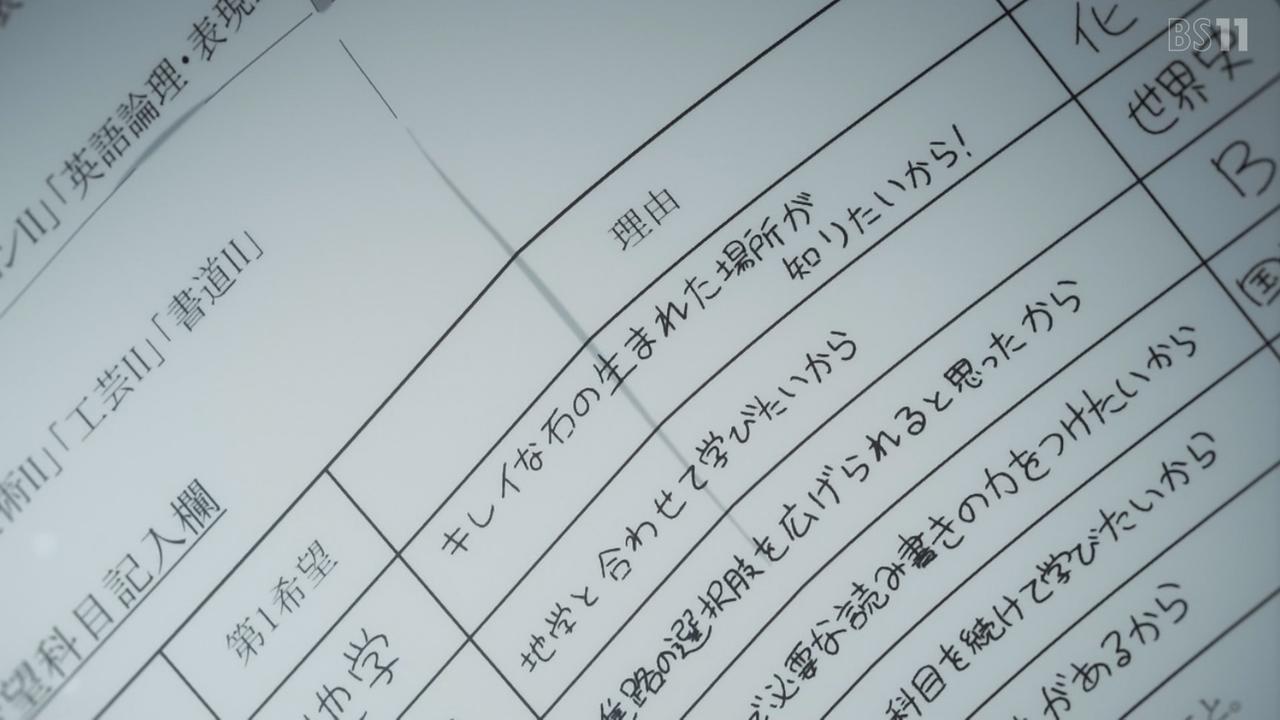 BS11
ンII」「英語論理・表現
術II」「工芸II」「書道II」
望科目記入欄
第1希望
理由
地学
キレイな石の生まれた場所が
知りたいから!
化
地学と合わせて学びたいから
世界史
進路の選択肢を広げられると思ったから
B
で必要な読み書きの力をつけたいから
国
科目を続けて学びたいから
があるから